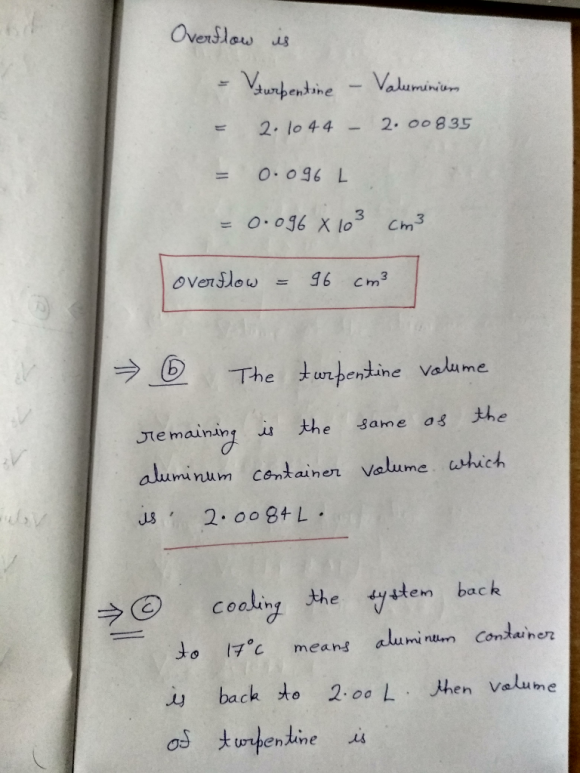 Overflow is
= Vturpentine - Valuminium
= 2.1044 - 2.00835
= 0.096 L
= 0.096 X 10³ cm³
overflow = 96 cm³
⇒ ⓑ The turpentine volume
remaining is the same as the
aluminum container volume which
is 2.0084 L.
⇒ ⓒ cooling the system back
to 17°C means aluminum container
is back to 2.00 L. then volume
of turpentine is